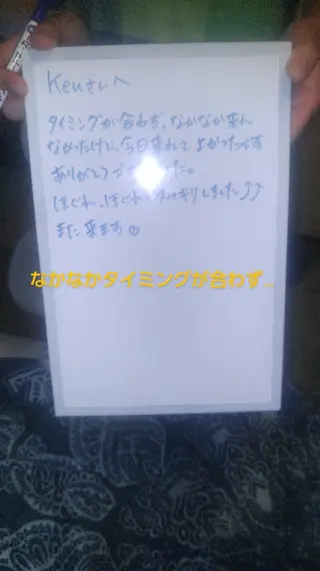 Kenさんへ
タイミングが合わず、なかなか来れ
なかったけど、今日来れてよかったです
ありがとうございました。
ほぐれ、ほぐれ スッキリしました⤴⤴
また来ます♡
なかなかタイミングが合わず…